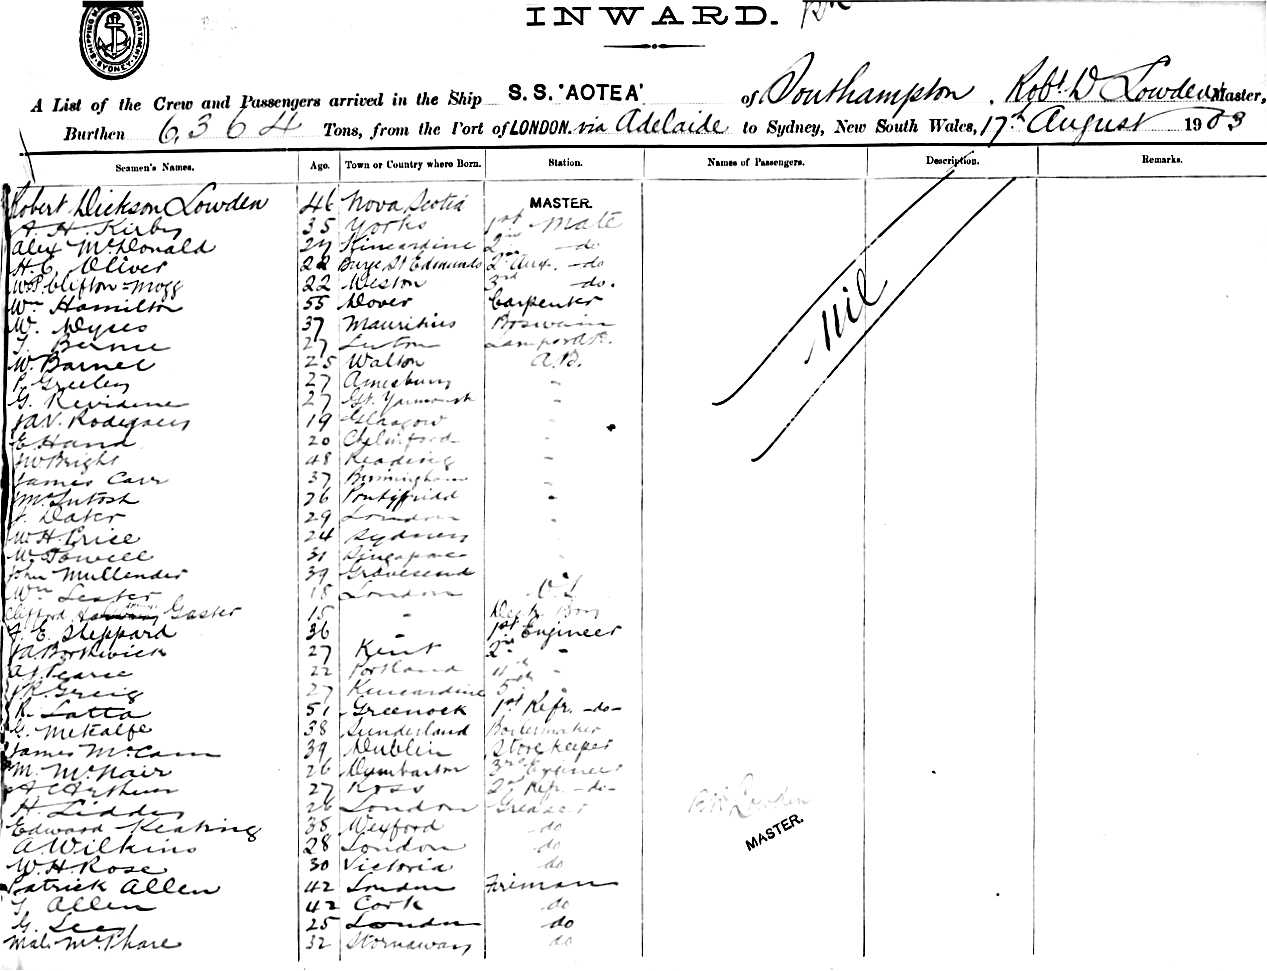 SHIPPING DEPARTMENT SYDNEY
INWARD.
A List of the Crew and Passengers arrived in the Ship S.S. 'AOTEA' of Southampton, Robt. D Lowden Master,
Burthen 6364 Tons, from the Port of LONDON. via Adelaide to Sydney, New South Wales, 17th August 1903
Seamen's Names. Age. Town or Country where Born. Station. Names of Passengers. Description. Remarks.
Robert Dickson Lowden 46 Nova Scotia MASTER.
A. H. Kirby 35 Yorks 1st Mate
Alex McDonald 27 Kincardine 2nd -do
H. C. Oliver 22 Burys St Edmunds 2nd Aux. -do
Clifton-Mogg 22 Weston 3rd do.
Wm Hamilton 55 Dover Carpenter
W. Dyses 37 Mauritius Boswain
T. Bernie 27 Luton
W. Barnet 25 Walton A.B.
P. Greeley 27 Amesbury "
G. Revidene 27 Gt. Yarmouth "
19 Glasgow "
E Hand 20 Chelmsford "
JW Bright 48 Reading "
James Carr 37 Birmingham "
J McIntosh 26 Pontypridd "
J. Dater 29 London "
W H Price 24 Sydney "
W. Towell 31 Singapore
John Mullender 39 Gravesend
Wm Lester 18 London O.S.
Clifford Gaster 15 " Deck Boy
F. E. Sheppard 36 " 1st Engineer
JA Borthwick 27 Kent 2nd "
A J Pearce 22 Portland 4th "
J R. Greig 27 Kincardine 5th "
R. Latta 51 Greenock 1st Refr. -do-
G. Metcalfe 38 Sunderland Boilermaker
James McCann 39 Dublin Storekeeper
M. McNair 26 Dumbarton 3rd Engineer
A C Arthur 27 Ross 2nd Refr. -do-
H. Liddes 26 London Greaser
Edward Keating 38 Wexford do
A Wilkins 28 London do
W. H. Rose 30 Victoria do
Patrick Allen 42 London Fireman
T. Allen 42 Cork do
G. Lee 25 London do
Mal. McPhare 32 Stornaway do
Nil
R D Lowden
MASTER.